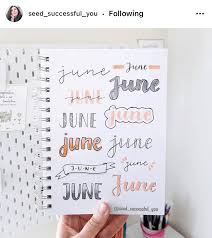 seed_successful_you • Following
june
JUNE
JUNE
June
JUNE
June
JUNE
june
JUNE
june
June
JUNE
june
JUNE
June
@seed_successful_you